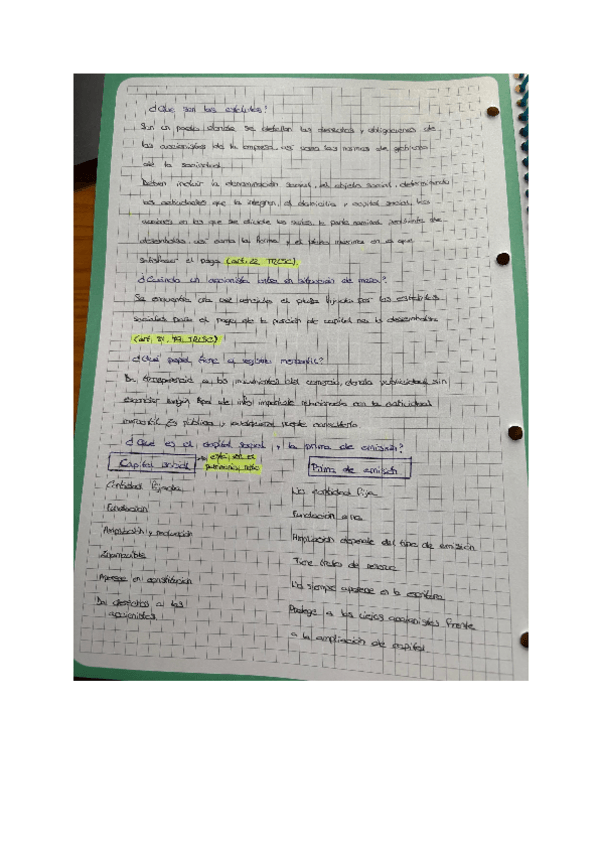 ¿Qué son los estatutos?
Son un pacto donde se detallan los derechos y obligaciones de
los accionistas de la empresa, así como las normas de gobierno
de la sociedad.
Deben incluir la denominación social, el objeto social, determinando
las actividades que la integren, el domicilio y capital social, las
acciones en las que se divide
desembolso, así como la forma y el plazo máximo en el que
satisfacer el pago (art. 23 TRLSC).
¿Cuándo un accionista entra en situación de mora?
Se encuentra una vez vencido el plazo fijado por los estatutos
sociales para el pago de la porción de capital no desembolsada
(art. 81, 82 TRLSC)
¿Qué papel tiene el registro mercantil?
Da transparencia a los movimientos del comercio, dando publicidad sin
esconder ningún tipo de info importante relacionada con la actividad
mercantil. Es pública y cualquiera puede consultarla
¿Qué es el capital social y la prima de emisión?
Capital social
Prima de emisión
Cantidad fijada
No cantidad fija
Fundación
Fundación o no
Ampliación y reducción
Ampliación depende del tipo de emisión
Tiene
de reserva
Aparece en constitución
No siempre aparece en la escritura
Da derechos a los
accionistas
Protege a los viejos accionistas frente
a la ampliación de capital